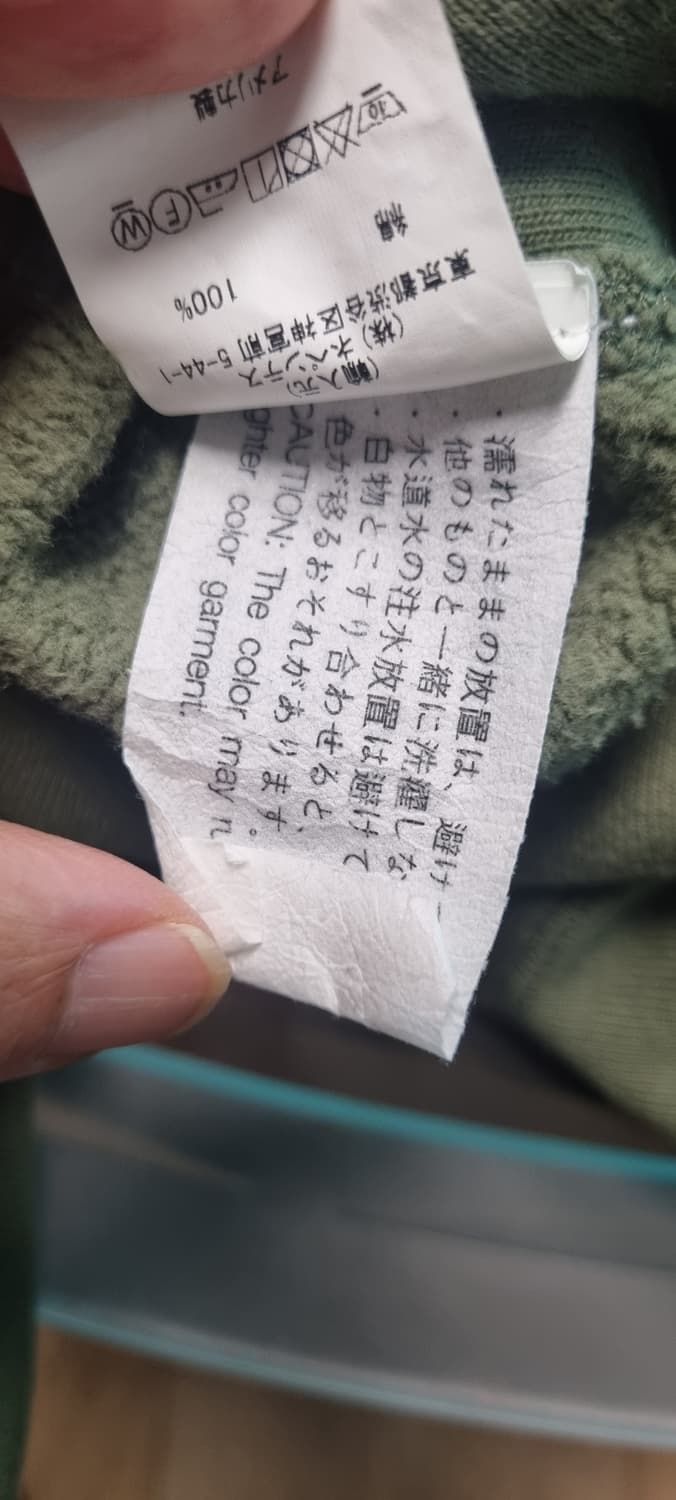 アメリカ製
W
F
綿
100%
(輸入元)
(株)ネペンテス
東京都渋谷区神宮前 5-44-1
・濡れたままの放置は、避け
・他のものと一緒に洗濯しな
・水道水の注水放置は避けて
・白物とこすり合わせると、
色が移るおそれがあります。
CAUTION: The color may
ghter color garment.